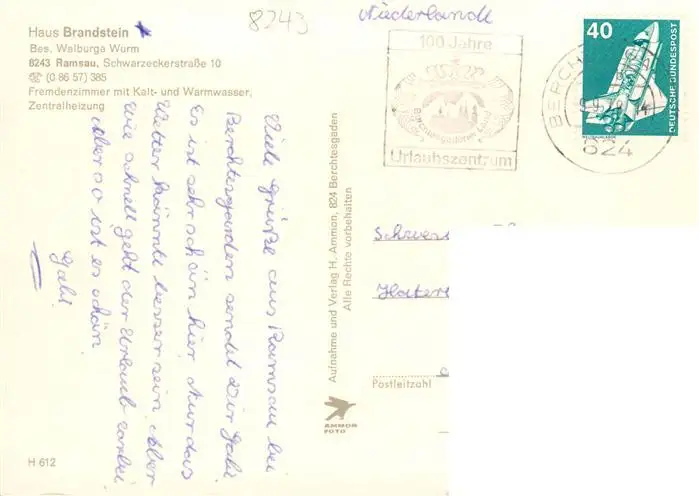 8243
Niederlande
Haus Brandstein
Bes. Walburga Wurm
8243 Ramsau, Schwarzeckerstraße 10
☎ (0 86 57) 385
Fremdenzimmer mit Kalt- und Warmwasser,
Zentralheizung
100 Jahre
Berchtesgadener Land
Urlaubszentrum
BERCHT
824
40
DEUTSCHE BUNDESPOST
WELTRAUMLABOR
Viele Grüße aus Ramsau bei
Berchtesgaden sendet Dir Gabi
Es ist sehr schön hier. Nur das
Wetter könnte besser sein. Aber
wie schnell geht der Urlaub vorbei
Aber so ist es schön
Gabi
Aufnahme und Verlag H. Ammon, 824 Berchtesgaden
Alle Rechte vorbehalten
AMMON
FOTO
Postleitzahl
H 612